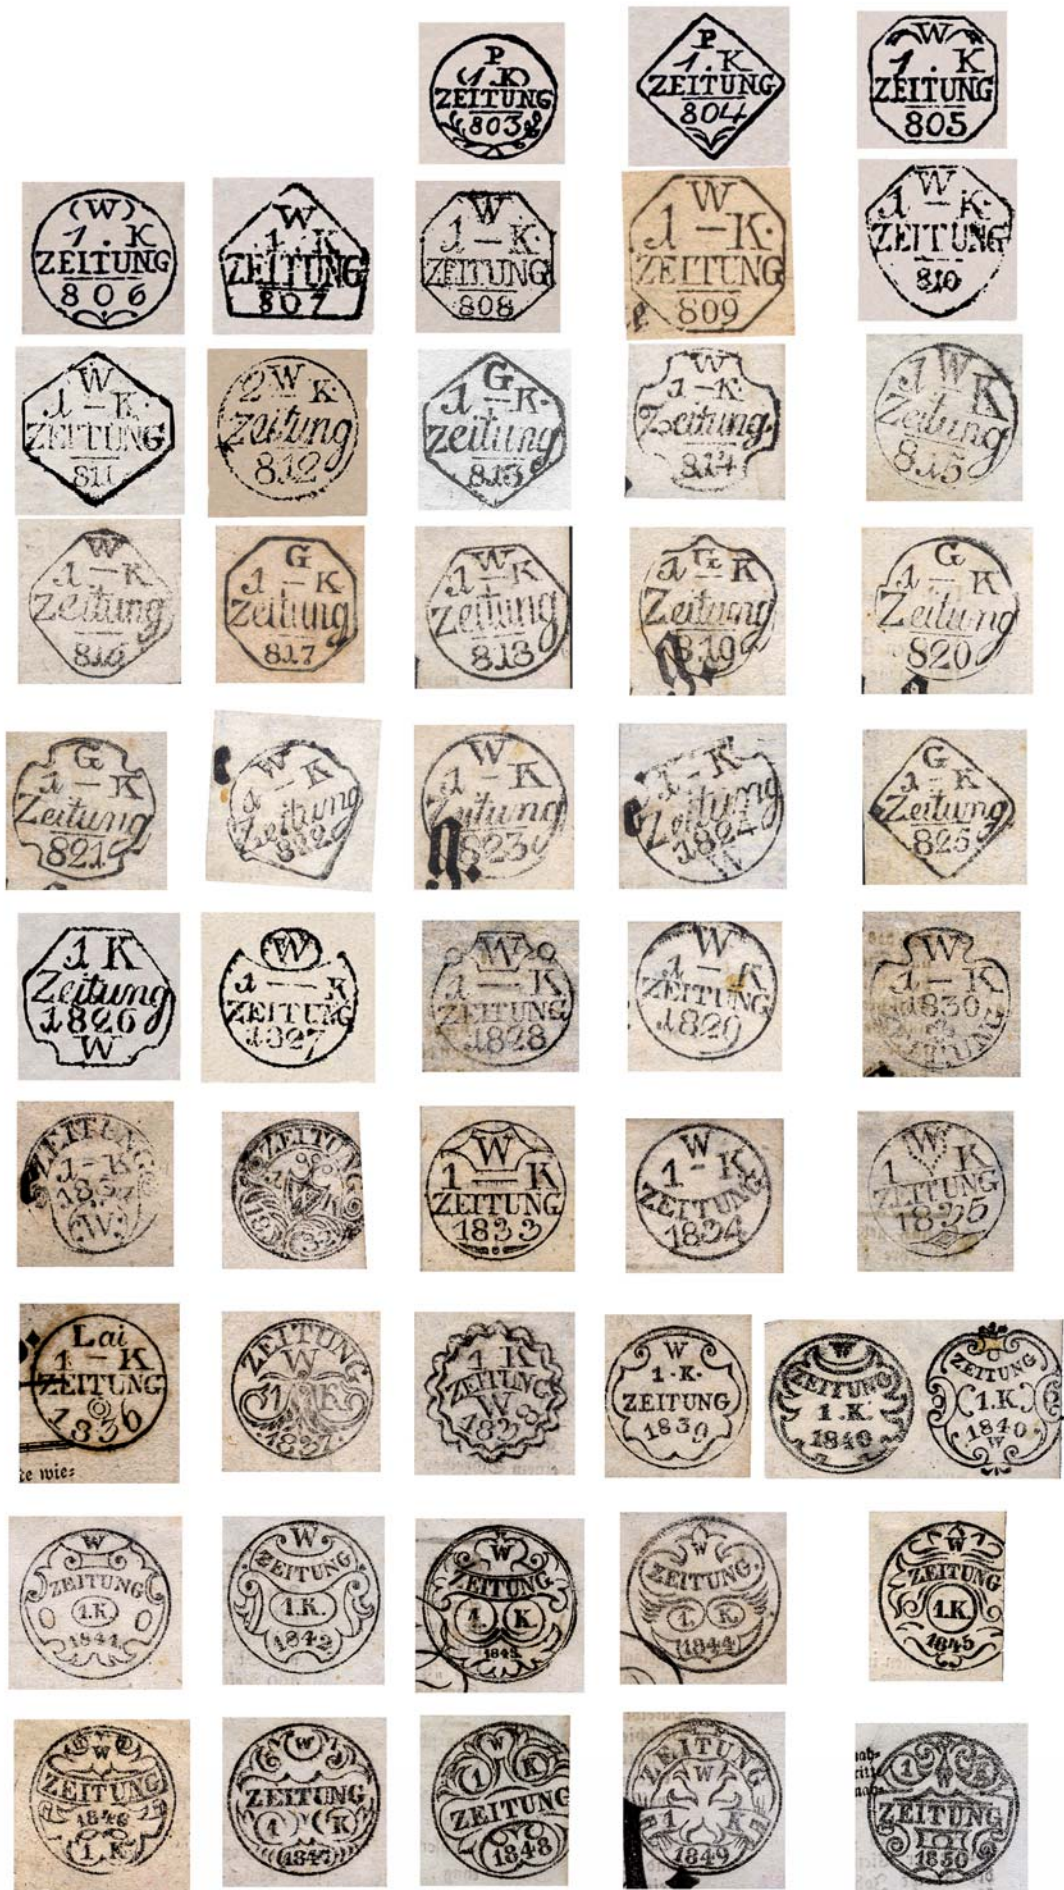 P
(1.K)
ZEITUNG
803
P
1.K
ZEITUNG
804
W
1.K
ZEITUNG
805
(W)
1.K
ZEITUNG
806
W
1.K
ZEITUNG
807
W
1-K.
ZEITUNG
808
W
1-K.
ZEITUNG
809
W
1-K.
ZEITUNG
810
W
1-K.
ZEITUNG
811
2 W K
Zeitung
812
G
1-K.
Zeitung
813
W
1-K.
Zeitung.
814
1 W K
Zeitung
815
W
1-K
Zeitung
816
G
1-K
Zeitung
817
W
1-K
Zeitung
818
G
1-K
Zeitung
819
G
1-K
Zeitung
820
G
1-K
Zeitung
821
W
1-K
Zeitung
822
W
1-K
Zeitung
823
1-K
Zeitung
1824
W
G
1-K
Zeitung
825
1 K
Zeitung
1826
W
W
1-K
ZEITUNG
1827
W
1-K
ZEITUNG
1828
W
1-K
ZEITUNG
1829
W
1-K
1830
ZEITUNG
ZEITUNG
1-K
1831
W.
ZEITUNG
1 W K
1832
W
1-K
ZEITUNG
1833
W
1-K
ZEITUNG
1834
W
1 K
ZEITUNG
1835
Lai
1-K
ZEITUNG
1836
te wie=
ZEITUNG
W
1 K
1837
1 K
ZEITUNG
W
1838
W
1.K.
ZEITUNG
1839
W
ZEITUNG
1.K.
1840
ZEITUNG
1.K.
1840
W
W
ZEITUNG
1.K.
1841.
W
ZEITUNG
1.K.
1842
W
ZEITUNG
1. K.
1843.
W
ZEITUNG.
1. K.
1844
W
ZEITUNG
1.K.
1845
W
ZEITUNG
1846
1.K
W
ZEITUNG
1 K
1847
W
1 K
ZEITUNG
1848
ZEITUNG
W
1 K
1849
1 K
W
ZEITUNG
1850